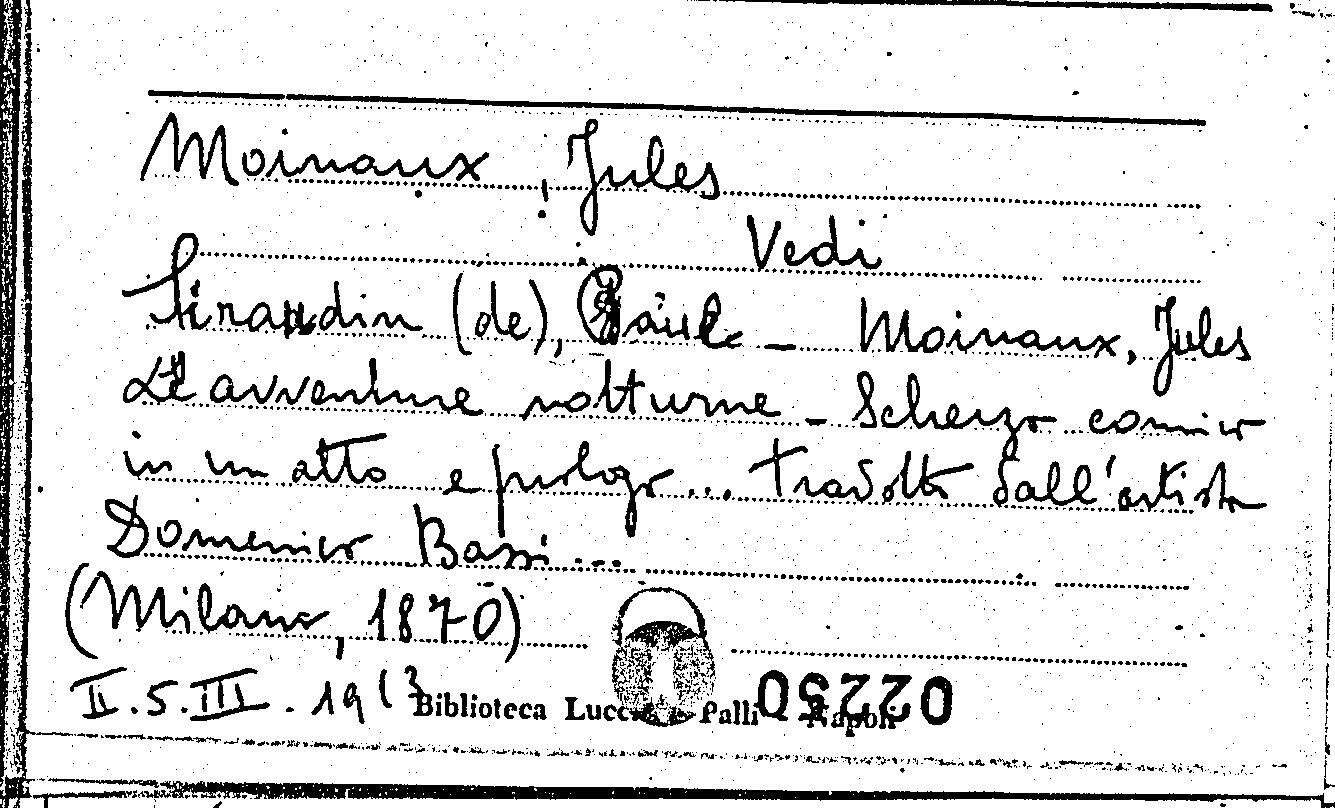 Moinaux, Jules
Vedi
Siraudin (de), Paul - Moinaux, Jules
Le avventure notturne - Scherzo comico
in un atto e prologo... tradotto dall'artista
Domenico Bassi...
(Milano, 1870)
II.5.III.19(3
Biblioteca Lucchesi Palli Napoli
02250